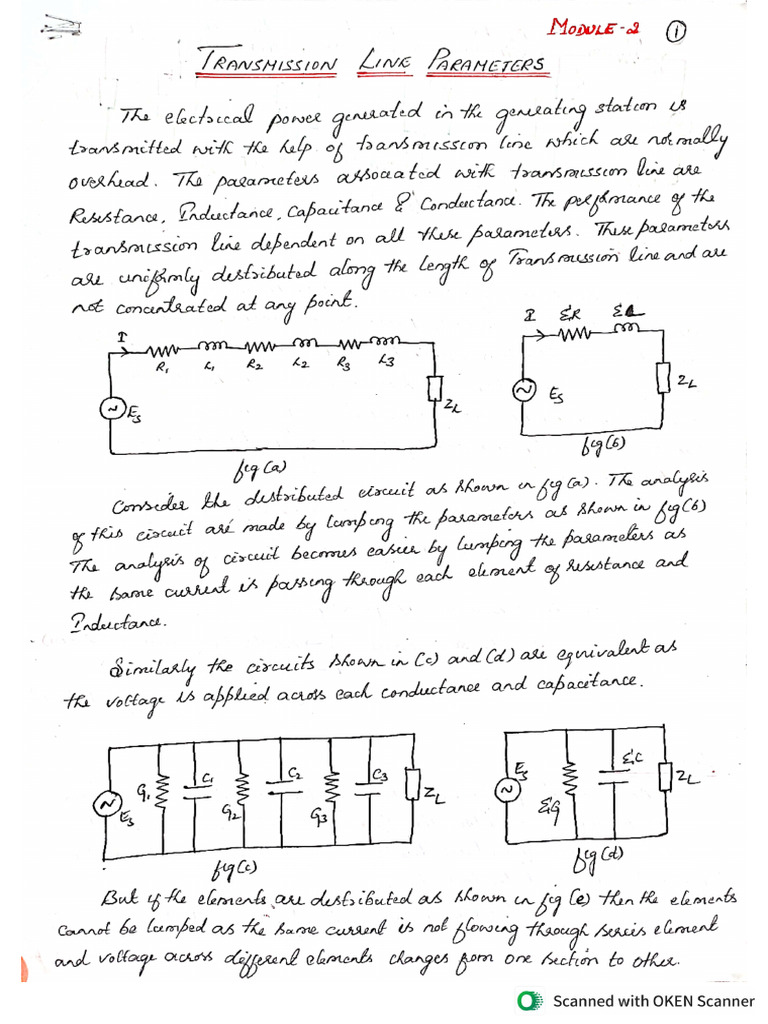 MODULE-2 ①
TRANSMISSION LINE PARAMETERS
The electrical power generated in the generating station is
transmitted with the help of transmission line which are normally
overhead. The parameters associated with transmission line are
Resistance, Inductance, Capacitance & Conductance. The performance of the
transmission line dependent on all these parameters. These parameters
are uniformly distributed along the length of Transmission line and are
not concentrated at any point.
I R1 L1 R2 L2 R3 L3
Es ZL
fig(a)
I ΣR ΣL
Es ZL
fig(b)
Consider the distributed circuit as shown in fig(a). The analysis
of this circuit are made by lumping the parameters as shown in fig(b)
The analysis of circuit becomes easier by lumping the parameters as
the same current is passing through each element of resistance and
Inductance.
Similarly the circuits shown in (c) and (d) are equivalent as
the voltage is applied across each conductance and capacitance.
Es G1 C1 G2 C2 G3 C3 ZL
fig(c)
Es ΣG ΣC ZL
fig(d)
But if the elements are distributed as shown in fig (e) then the elements
cannot be lumped as the same current is not flowing through series element
and voltage across different elements changes from one section to other.
Scanned with OKEN Scanner